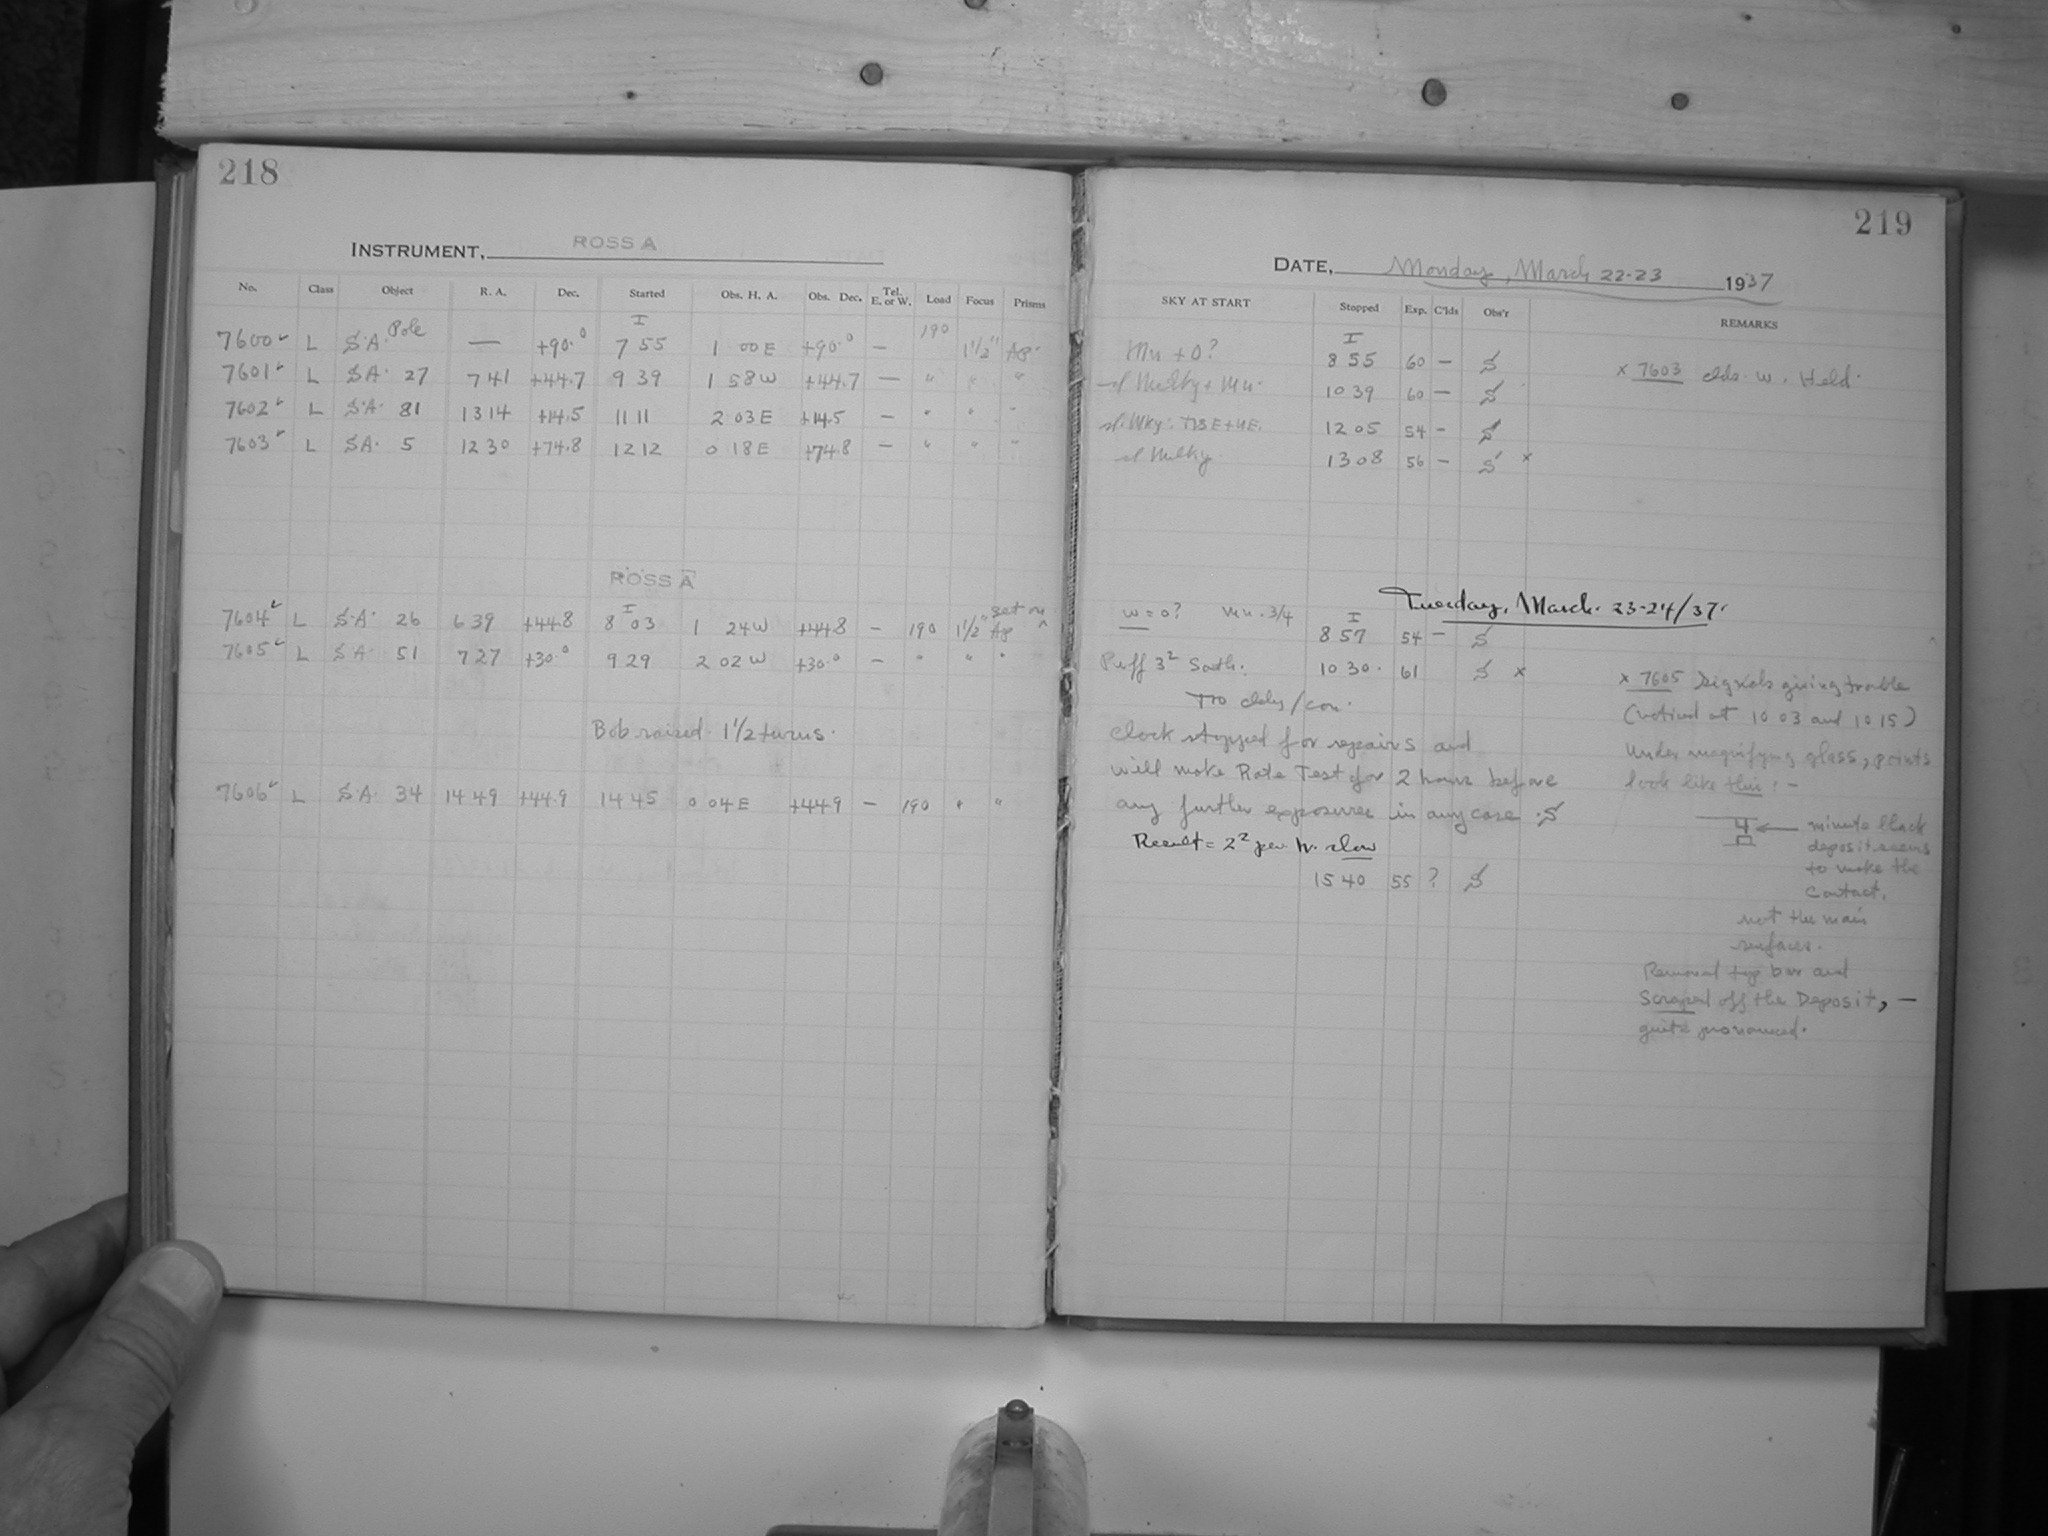 218
INSTRUMENT, ROSS A
No. Class Object R. A. Dec. Started Obs. H. A. Obs. Dec. Tel. E. or W. Load Focus Prisms
7600 L S.A. Pole — +90.0 I 7 55 1 00 E +90.0 — 190 1 1/2" Ap.
7601 L S.A. 27 7 41 +44.7 9 39 1 58 W +44.7 — " " "
7602 L S.A. 81 13 14 +14.5 11 11 2 03 E +14.5 — " " "
7603 L S.A. 5 12 30 +74.8 12 12 0 18 E +74.8 — " " "
ROSS A
7604 L S.A. 26 6 39 +44.8 I 8 03 1 24 W +44.8 — 190 1 1/2" Ap set on
7605 L S.A. 51 7 27 +30.0 9 29 2 02 W +30.0 — " " "
Bob raised 1 1/2 turns.
7606 L S.A. 34 14 49 +44.9 14 45 0 04 E +44.9 — 190 " "
219
DATE, Monday, March 22-23 1937
SKY AT START Stopped Exp. C'lds Obs'r REMARKS
Mn + 0? I 8 55 60 — S
x 7603 clds. W. Held.
sl Milky + Mn. 10 39 60 — S
12 05 54 — S
sl Milky 13 08 56 — S x
Tuesday, March 23-24/37.
W = 0? Mn. 3/4 I 8 57 54 — S
Puff 3² South. 10 30. 61 S x
x 7605 Signals giving trouble
(noticed at 10 03 and 10 15)
Under magnifying glass, points
look like this: —
minute black
deposit seems
to make the
Contact.
not the main
surfaces.
Removed top bar and
Scraped off the Deposit, —
quite pronounced.
clock stopped for repairs and
will make Rate Test for 2 hours before
any further exposures in any case. S
Result = 2² per h. slow
15 40 55 ? S